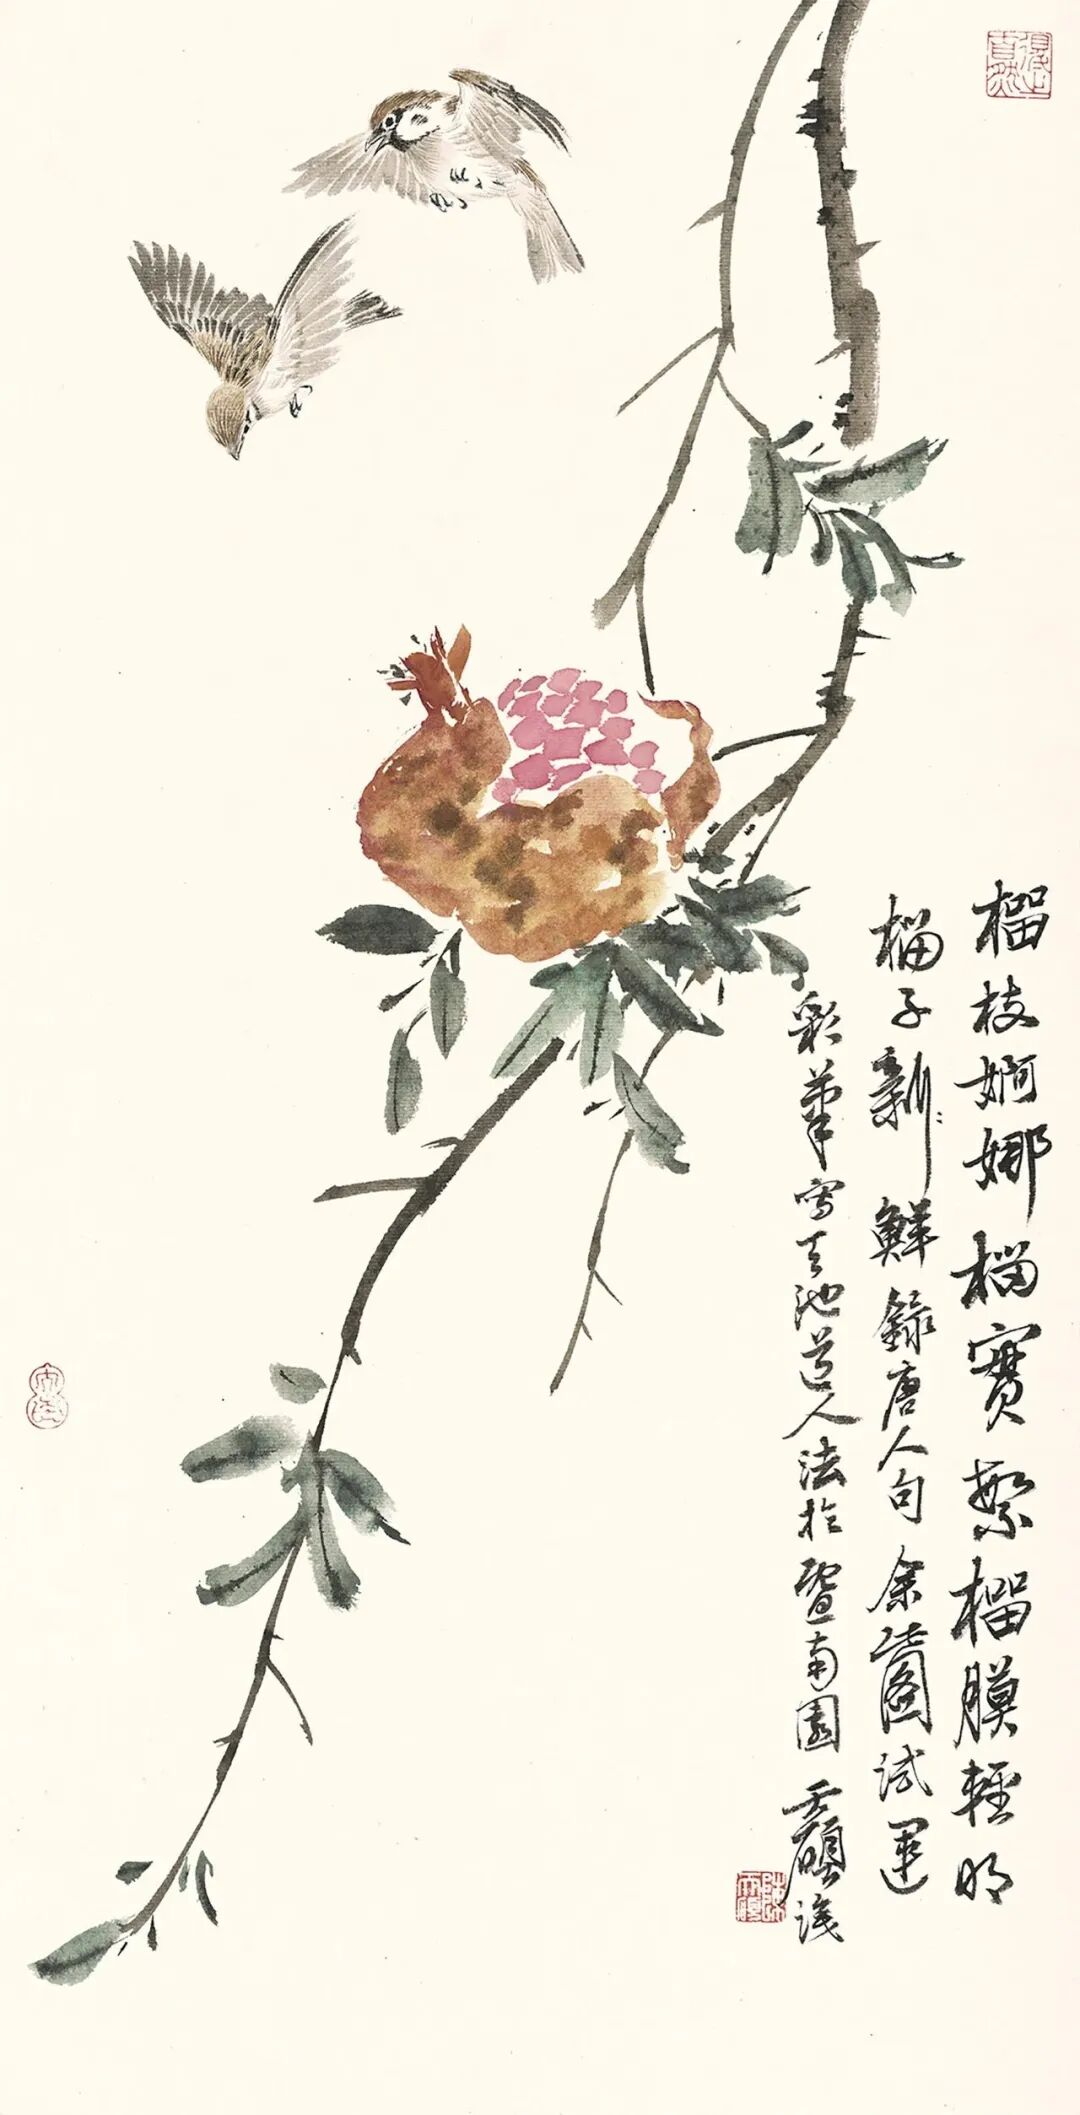 榴枝婀娜榴實繁榴膜輕明
榴子新鮮錄唐人句余圖試運
彩筆寫天池道人法於暨南園 識